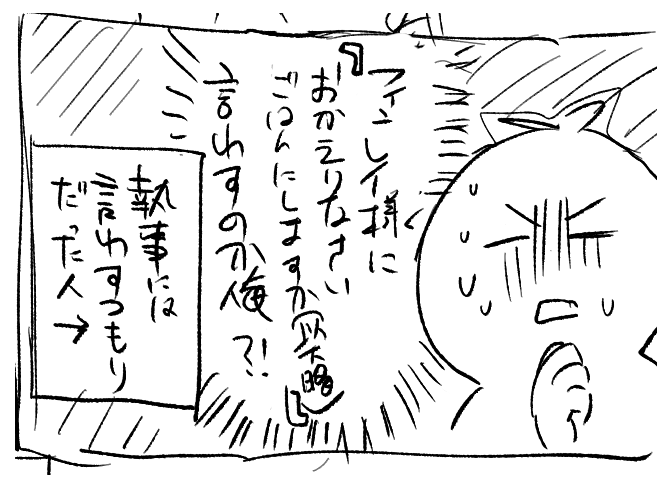 フィンレイ様に
『おかえりなさい
ごはんにしますか(以下略)』
言わすのか俺?!
執事には
言わすつもり
だった人→